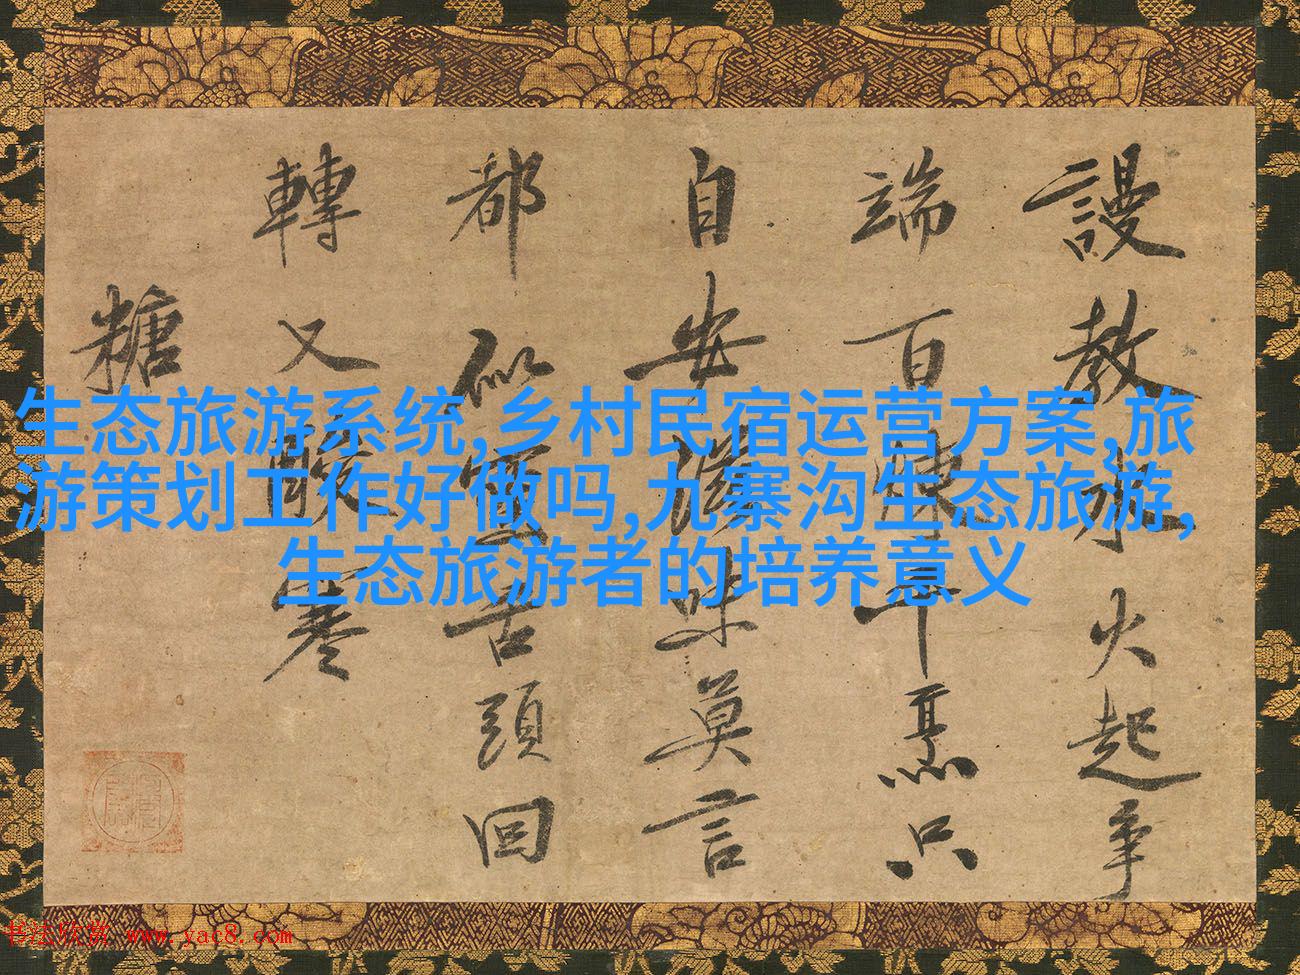 謾教水火起爭
端百煉千熏只
自安滋味莫言
都似蜜舌頭回
轉又酸寒
糖
生态旅游系统,乡村民宿运营方案,旅
游策划工作好做吗,九寨沟生态旅游,
生态旅游者的培养意义
书法欣赏 www.yac8.com